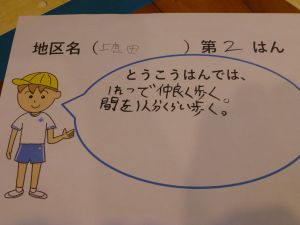 地区名(上窪田)第2はん
とうこうはんでは、
1れつで仲良く歩く。
間を1人分くらい歩く。